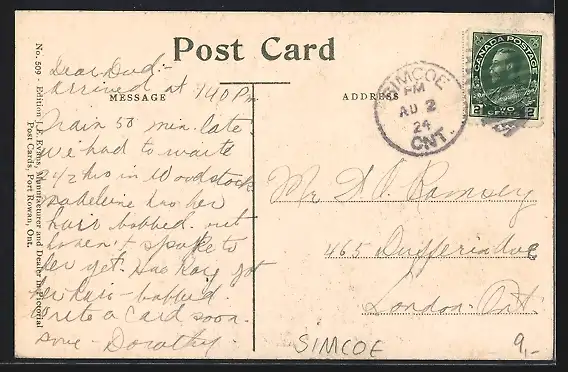 Post Card
MESSAGE
ADDRESS
Dear Dad:-
arrived at 7 40 Pm
Train 50 min. late
we had to waite
2 1/2 hrs in Woodstock
Madeleine has her
hair bobbed. but
haven't spoke to
her yet. Has Kay got
her hair bobbed.
Write a card soon.
Dorothy.
No. 509 - Edition J.E. Evans, Manufacturer and Dealer in Pictorial
Post Cards, Port Rowan, Ont.
SIMCOE
PM
AU 2
24
ONT.
CANADA POSTAGE
2 TWO CENTS 2
Mr D. Ramsey
465 Dufferin Ave
London. Ont.
SIMCOE
9,-